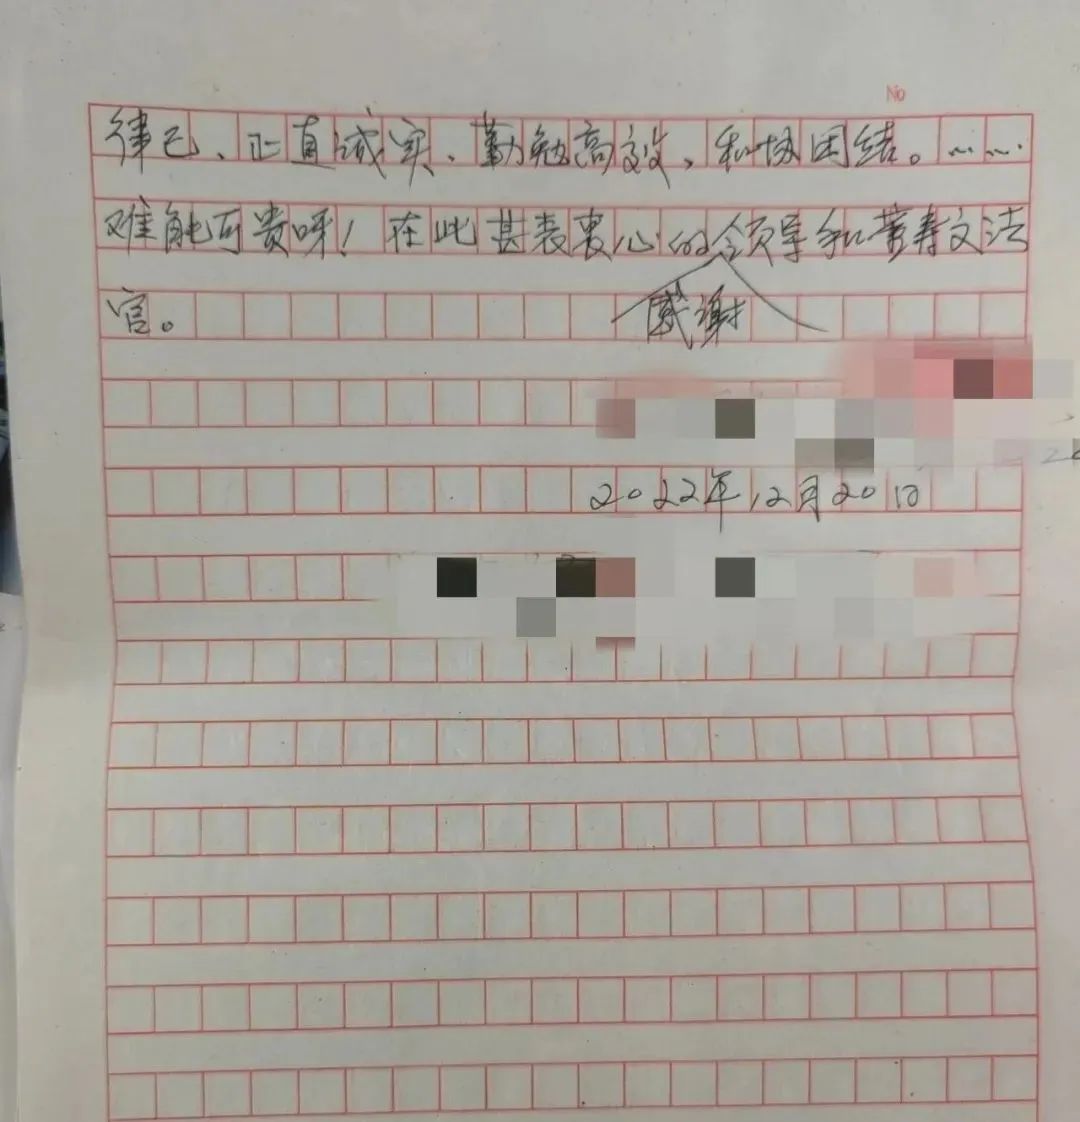 No
律己、正直诚实、勤勉高效、和协团结。……
难能可贵呀！在此甚表衷心的领导和寿文法
官。
感谢
2022年12月20日